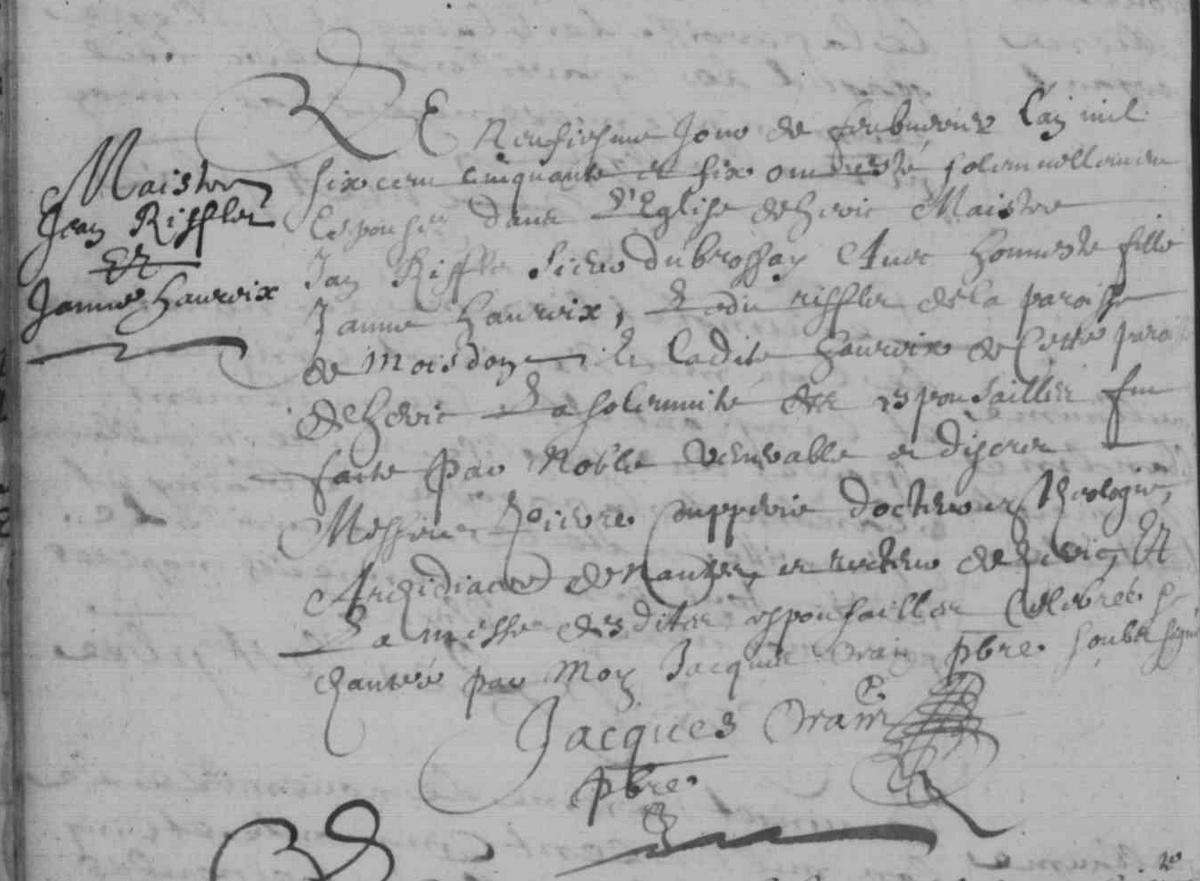 Maistre
Jean Riffler
Et
Janne Hauroix
LE Neufiesme Jour de febuvrier L'an mil
six cent cinquante et six ont esté solemnellement
Espousez dans L'Eglise de Heric Maistre
Jan Riffler Sieur du brossay Avec honneste fille
Janne Hauroix, Ledit riffler de la paroisse
de Moisdon et Ladite Hauroix de Cette paroi
de Heric La solemnité des espousailles fut
faite par Noble venerable et discret
Messire Pierre docteur en Theologie,
Archidiacre de Nantes, et recteur de Heric, Et
La messe desdites espousailles Celebrée
chantée par Moy Jacques pbre. soubz signé
Jacques
pbre.